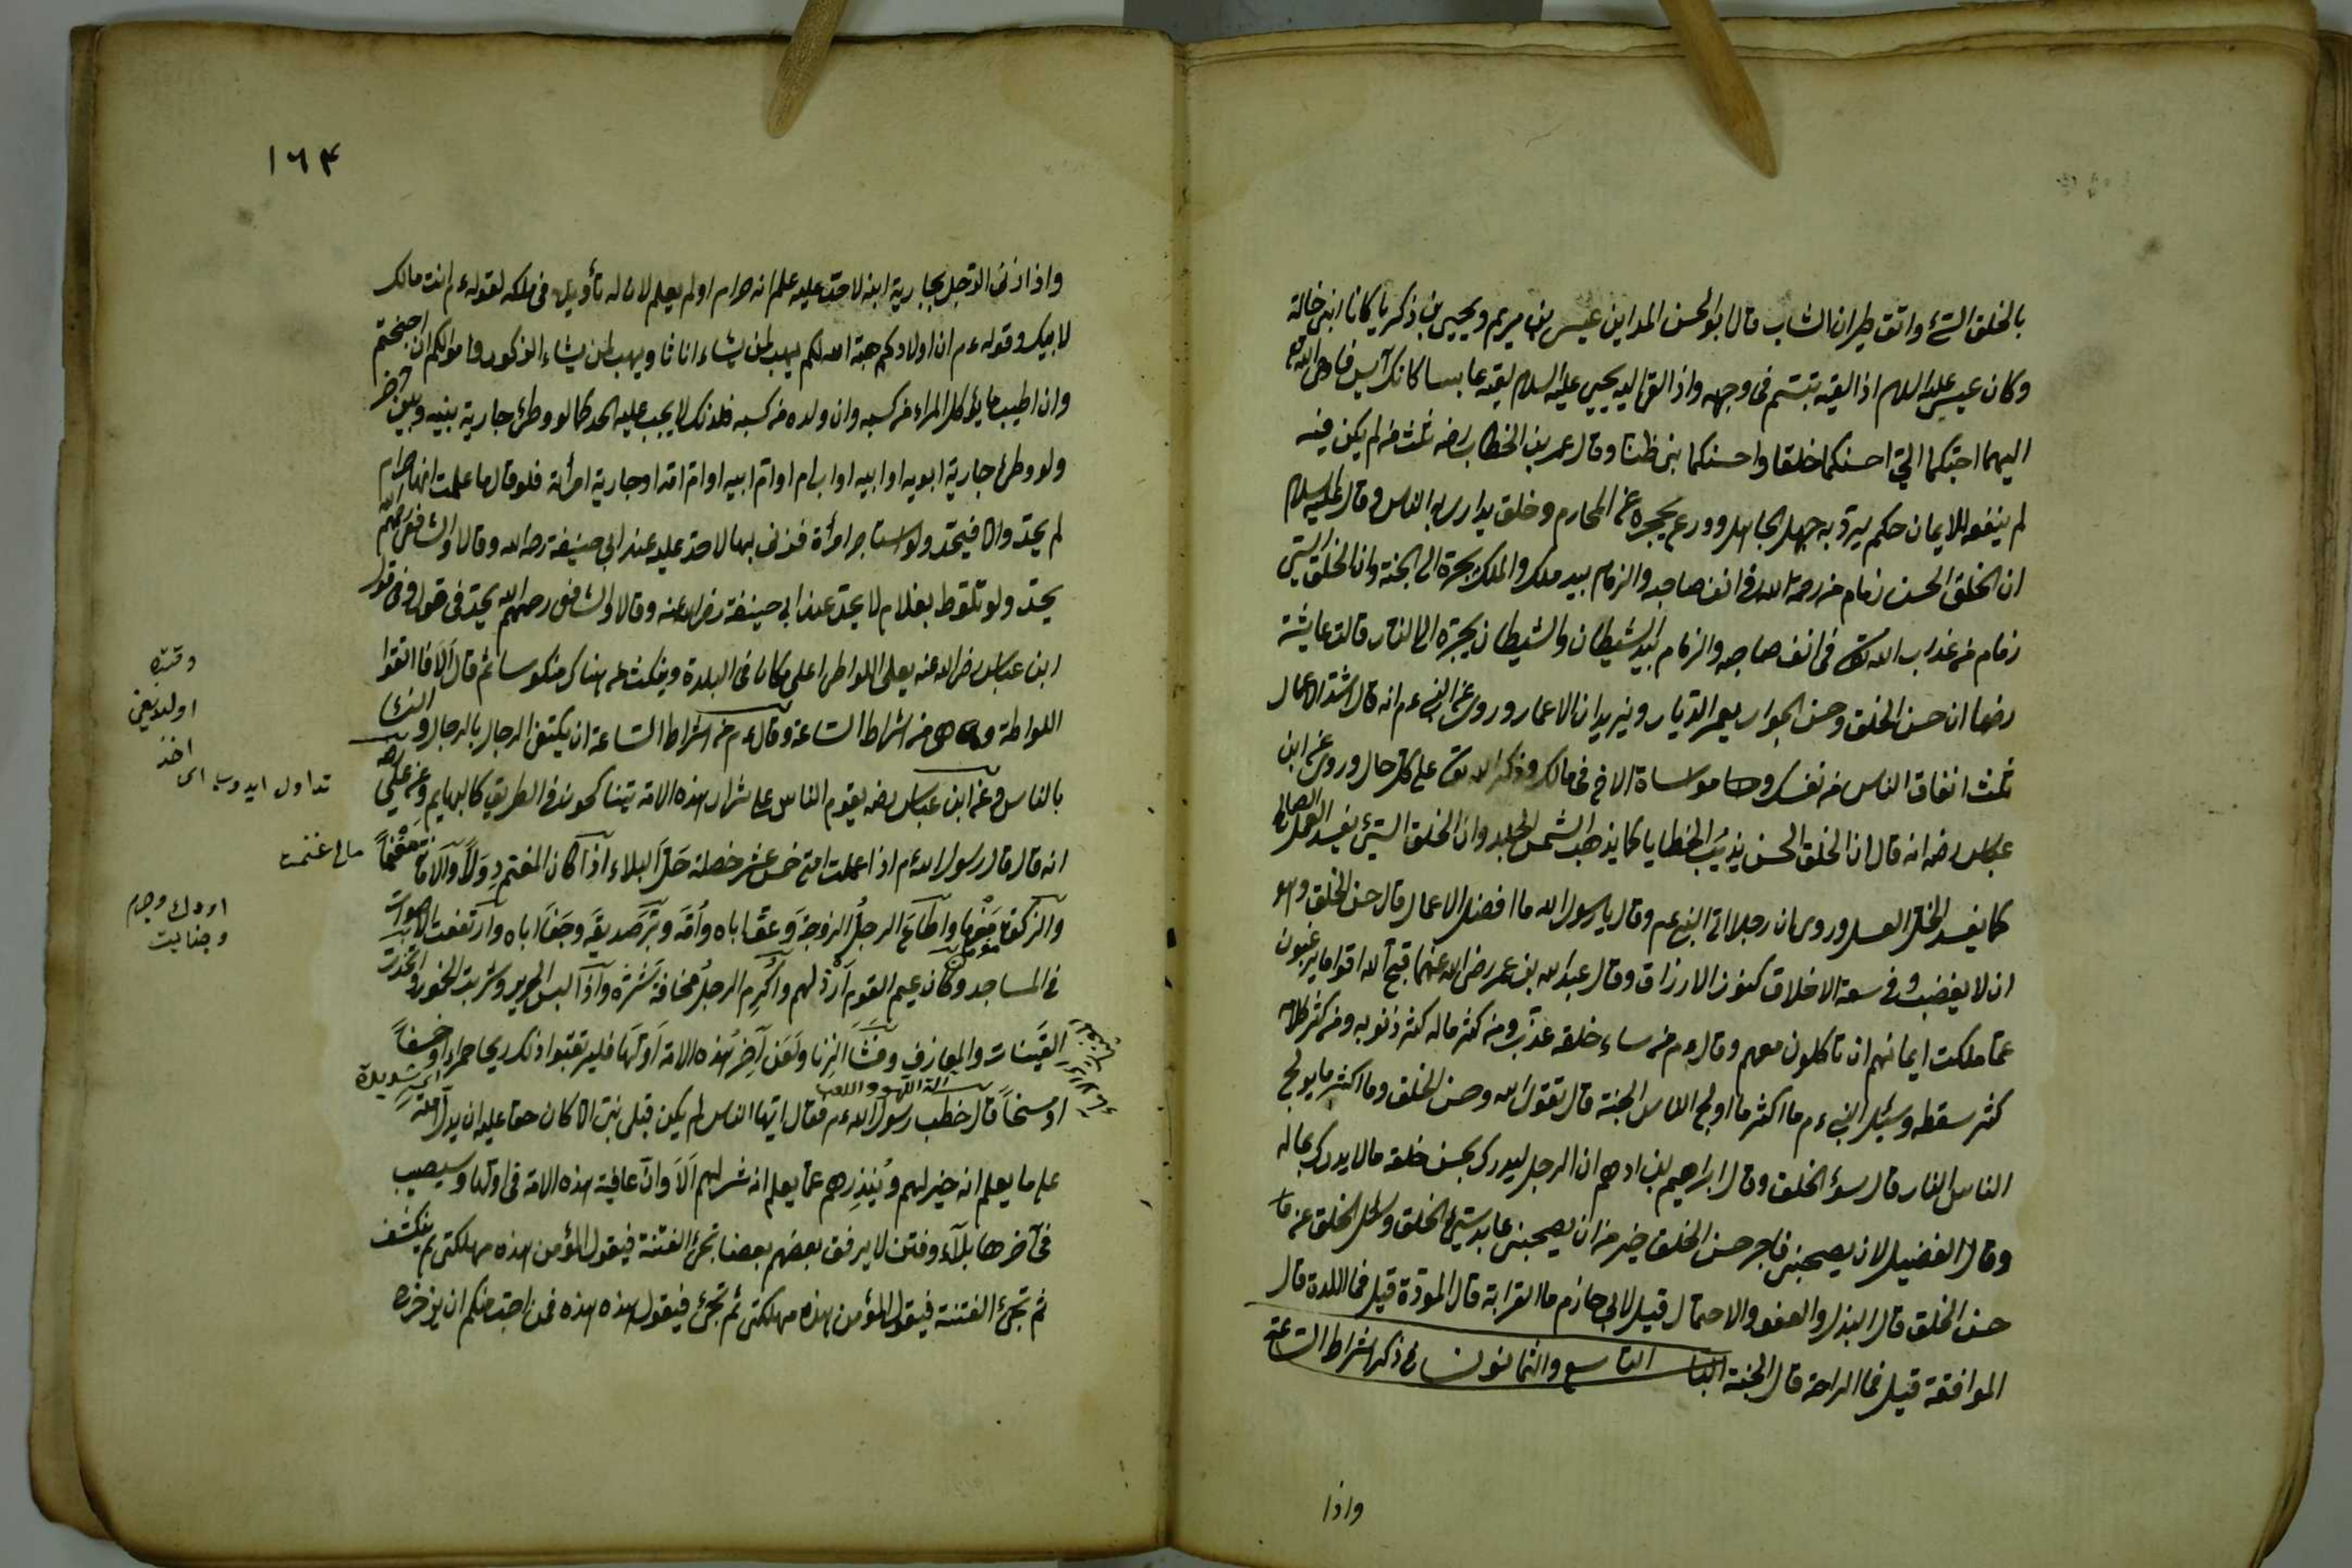 بالخلق السئ واتق طيران الشاب قال ابو الحسن المداين عيسى بن مريم ويحيى بن زكريا كانا ابنى خالة
وكان عيسى عليه السلام اذا لقيه تبسم فى وجهه واذا لقى اليه يحيى عليه السلام لقيه عابسا كانك آيس فاوحى الله تع
اليهما احبكما الىّ احسنكما خلقا واحسنكما بى ظنا وقال عمر بن الخطاب رضه ثلث من لم يكن فيه
لم ينفعه الايمان حكم يرد به جهل الجاهل وورع يحجزه عن المحارم وخلق يدارى به الناس وقال عليه السلام
ان الخلق الحسن زمام من رحمة الله فى انف صاحبه والزمام بيد ملك والملك يجره الى الجنة وان الخلق السيئ
زمام من عذاب الله تع فى انف صاحبه والزمام بيد الشيطان والشيطان يجره الى النار قالت عايشة
رضها ان حسن الخلق وحسن الجوار يعمر الديار ويزيدان الاعمار وروى عن النبى ءم انه قال اشد الاعمال
ثلث انفاق الناس من نفسك ومواساة الاخ فى مالك وذكر الله تع على كل حال وروى عن ابن
عباس رضه انه قال ان الخلق الحسن يذيب الخطايا كما يذهب الشمس الجليد وان الخلق السيئ يفسد العمل الصالح
كما يفسد الخل العسل وروى ان رجلا اتى النبى عم وقال يا رسول الله ما افضل الاعمال قال حسن الخلق وهو
ان لا يغضب وفى سعة الاخلاق كنوز الارزاق وقال عبد الله بن عمر رضى الله عنهما قبح الله اقواما يرغبون
عما ملكت ايمانهم ان تاكلون معهم وقال ءم من ساء خلقه عذب ومن كثر ماله كثر ذنوبه ومن كثر كلامه
كثر سقطه وسئل النبى ءم ما اكثر ما اولج الناس الجنة قال تقوى الله وحسن الخلق وما اكثر ما يولج
الناس النار قال سوء الخلق وقال ابراهيم بن ادهم ان الرجل ليدرك بحسن خلقه ما لا يدرك بماله
وقال الفضيل لان يصحبنى فاجر حسن الخلق خير من ان يصحبنى عابد سيئ الخلق وسئل الخلق عن ما
حسن الخلق قال البذل والعفو والاحتمال قيل لابى حازم ما القرابة قال المودة قيل فما اللذة قال
الموافقة قيل فما الراحة قال الجنة الباب التاسع والثمانون فى ذكر اشراط الساعة
واذا
١٦۴
واذا زنى الرجل بجارية ابنه لا حد عليه علم انه حرام او لم يعلم لان له تأويل فى ملكه لقوله ءم انت ومالك
لابيك وقوله ءم ان اولادكم هبة الله لكم يهب لمن يشاء اناثا ويهب لمن يشاء الذكور واموالكم ان احتجتم
وان اطيب ما يؤكل المراء من كسبه وان ولده من كسبه فلذلك لا يجب عليه الحد كما لو وطئ جارية بينه وبين آخر
ولو وطئ جارية ابويه او ابيه او اب ام او ام ابيه او ام امه او جارية امرأته فلو قال ما علمت انها حرام
لم يحد والا فيحد ولو استاجر امرأة فزنى بها لا حد عليه عند ابى حنيفة رحه الله وقالا والشافعى رحمهم الله
يحد ولو تلوط بغلام لا يحد عند ابى حنيفة رضى الله عنه وقالا والشافعى رحمهم الله يحد فى قول وفى قول
ابن عباس رضى الله عنه يعلى اللواطى اعلى مكان فى البلدة وينكث عنه هناك منكوسا ثم قال الا فاتقوا
اللواطة وهى من اشراط الساعة وقال ءم من اشراط الساعة ان يكتفى الرجال بالرجال والنساء
بالناس وعن ابن عباس رضه يقوم الناس على شرار هذه الامة يتناكحون فى الطريق كالبهايم وعن على رضه
انه قال قال رسول الله ءم اذا عملت امتى خمس عشر خصلة حل البلاء اذا كان المغنم دولا والامانة مغنما
والزكوة مغرما واطاع الرجل الزوجة وعق اباه وامه وبر صديقه وجفا اباه وارتفعت الاصوات
فى المساجد وكان زعيم القوم ارذلهم واكرم الرجل مخافة شره واذا لبس الحرير وشربت الخمور واتخذت
القينات والمعازف وفشا الزنا ولعن آخر هذه الامة اولها فليرتقبوا ذلك ريحا حمراء او خسفا
آلة اللهو واللعب
اى شديدة
او مسخا قال خطب رسول الله ءم فقال ايها الناس لم يكن قبلى نبى الا كان حقا عليه ان يدل امته
على ما يعلم انه خير لهم وينذرهم عما يعلم انه شر لهم الا وان عافية هذه الامة فى اولها وسيصيب
فى آخرها بلآء وفتن لا يرفق بعضهم بعضا تجئ الفتنة فيقول المؤمن هذه مهلكتى ثم ينكشف
ثم تجئ الفتنة فيقول المؤمن هذه مهلكتى ثم تجئ فيقول هذه هذه فمن احب منكم ان يزحزح
وقتده
اولديغى
تداول ايدوب اى اخذ
مال غنمت
اودك وجرم
وجنايت